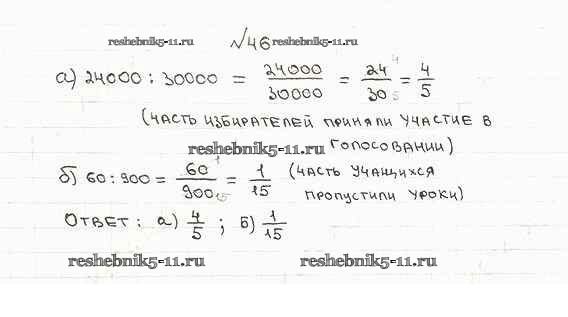 reshebnik5-11.ru √46 reshebnik5-11.ru
а) 24000 : 30000 = 24000/30000 = 24⁴/30₅ = 4/5
(ЧАСТЬ ИЗБИРАТЕЛЕЙ ПРИНЯЛИ УЧАСТИЕ В
reshebnik5-11.ru ГОЛОСОВАНИИ)
б) 60 : 900 = 60¹/900₁₅ = 1/15 (ЧАСТЬ УЧАЩИХСЯ
ПРОПУСТИЛИ УРОКИ)
ОТВЕТ: а) 4/5 ; б) 1/15
reshebnik5-11.ru reshebnik5-11.ru